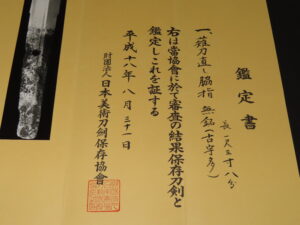 鑑定書
一、薙刀直し脇指 無銘(古宇多)
長 一尺三寸八分
右は當協會に於て審査の結果保存刀剣と
鑑定しこれを証する
平成十八年八月三十一日
財団法人日本美術刀剣保存協會